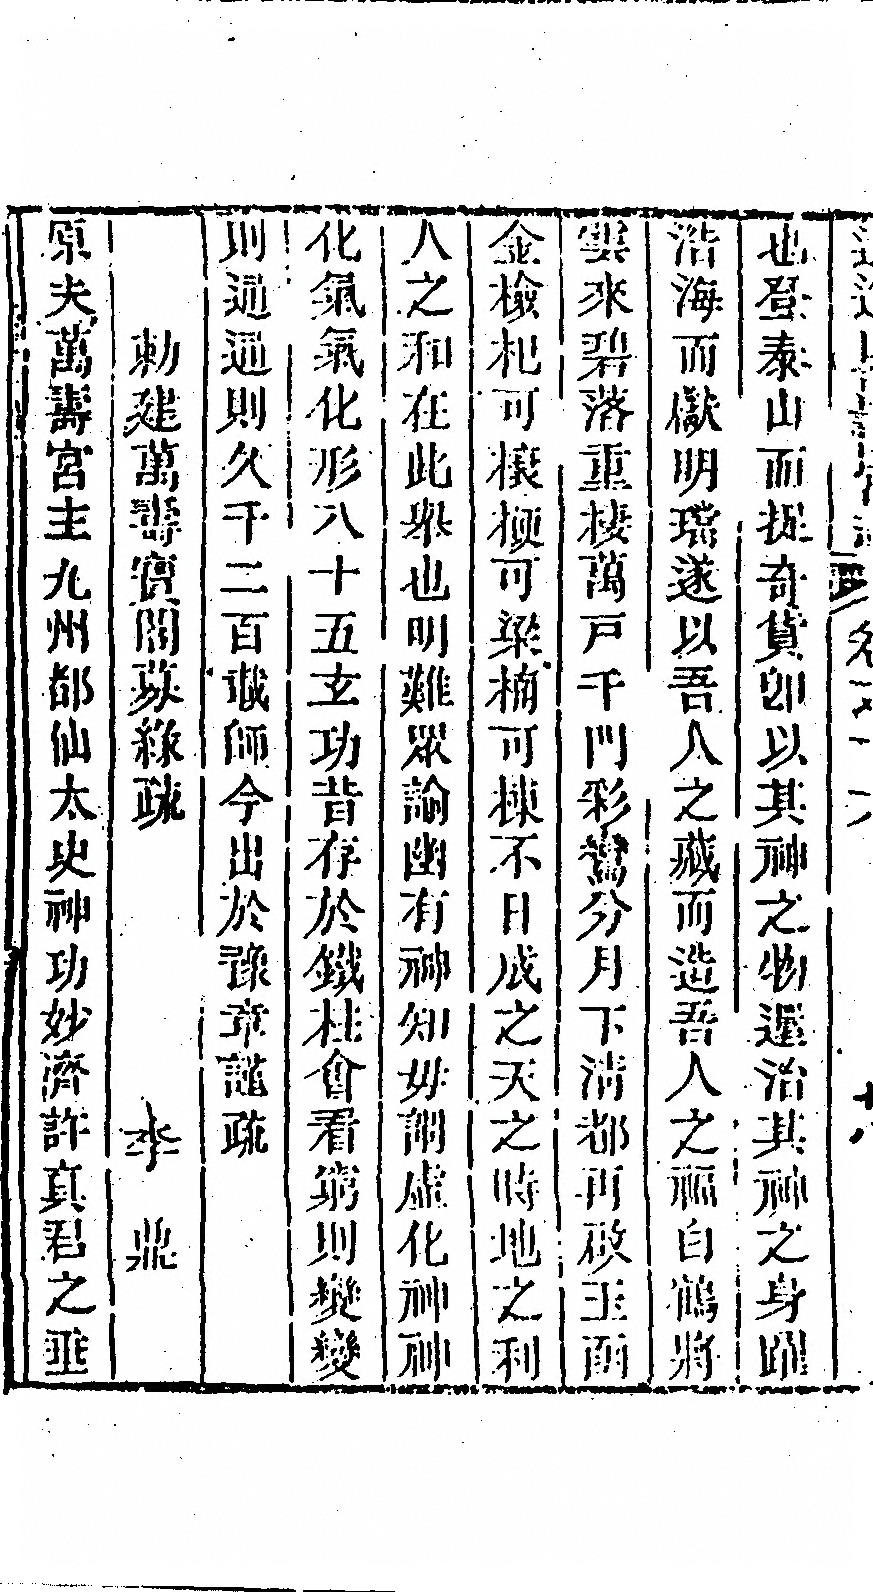 也登泰山而掘奇貨即以其神之物還治其神之身蹈
浩海而獻明璫遂以吾人之藏而造吾人之福白鶴將
雲來碧落重棲萬戶千門彩鸞分月下清都再啟玉函
金檢杞可榱梗可梁楠可棟不日成之天之時地之利
人之和在此舉也明難眾諭幽有神知毋謂虛化神神
化氣氣化形八十五玄功昔存於鐵柱會看窮則變變
則通通則久千二百載師今出於豫章謹疏
勅建萬壽寶閣募緣疏
李鼎
原夫萬壽宮主九州都仙太史神功妙濟許真君之垂